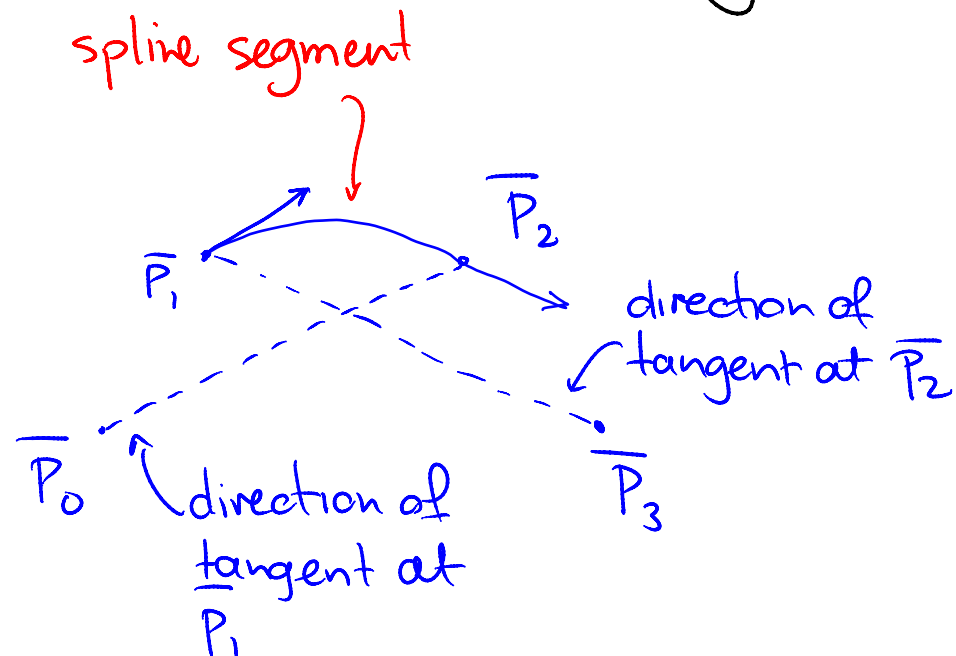 spline segment
P̅₂
P̅₁
direction of
tangent at P̅₂
P̅₀
direction of
tangent at
P̅₁
P̅₃